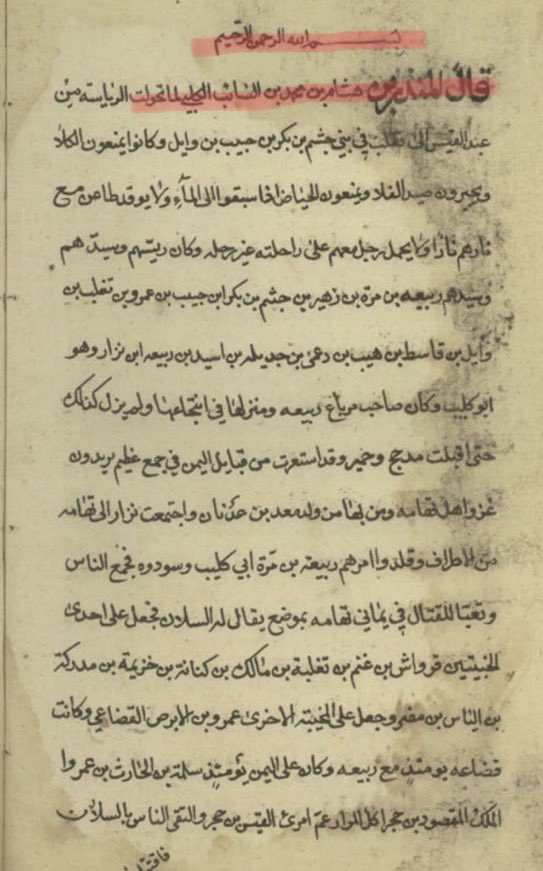 بسم الله الرحمن الرحيم
قال المنذر بن هشام بن محمد بن السائب الكلبي لما تحولت الرياسة من
عبد القيس الى تغلب في بني جشم بن بكر بن حبيب بن وايل وكانوا يمنعون الكلاء
ويجيرون صيد الفلا ويمنعون الحياض اذا سبقوا الى المآء ولا يوقد ظاعن مع
نارهم نارا ولا يحمل رجل معهم على راحلته غير رحله وكان رييسهم وسيدهم
وسيدهم ربيعه بن مرة بن زهير بن جشم بن بكر ابن حبيب بن عمرو بن تغلب بن
وايل بن قاسط بن هيب بن دعمى بن جديله بن اسيد بن ربيعه ابن نزار وهو
ابو كليب وكان صاحب مرباع ربيعه ومنزلها في انتجاعها ولم يزل كذلك
حتى اقبلت مدحج وحمير وقد استعرت من قبايل اليمن في جمع عظيم يريدون
غزو اهل تهامه ومن بها من ولد معد بن عدنان واجتمعت نزار الى تهامه
من الاطراف وقلدوا امرهم ربيعة بن مرة ابي كليب وسودوه فجمع الناس
وتعبا للقتال في يماني تهامه بموضع يقال له السلان فجعل على احدى
المجنبتين قرواش بن غنم بن تغلبة بن مالك بن كنانة بن خزيمة بن مدركة
بن الياس بن مضر وجعل على المجنبته الاخرى عمرو بن الابرص القضاعي وكانت
قضاعه يومئذ مع ربيعه وكان على اليمن يومئذ سلمة بن الحارث بن عمروا
الملك المقصود بن حجر اكل المرار عم امرئ القيس بن حجر والتقى الناس بالسلان